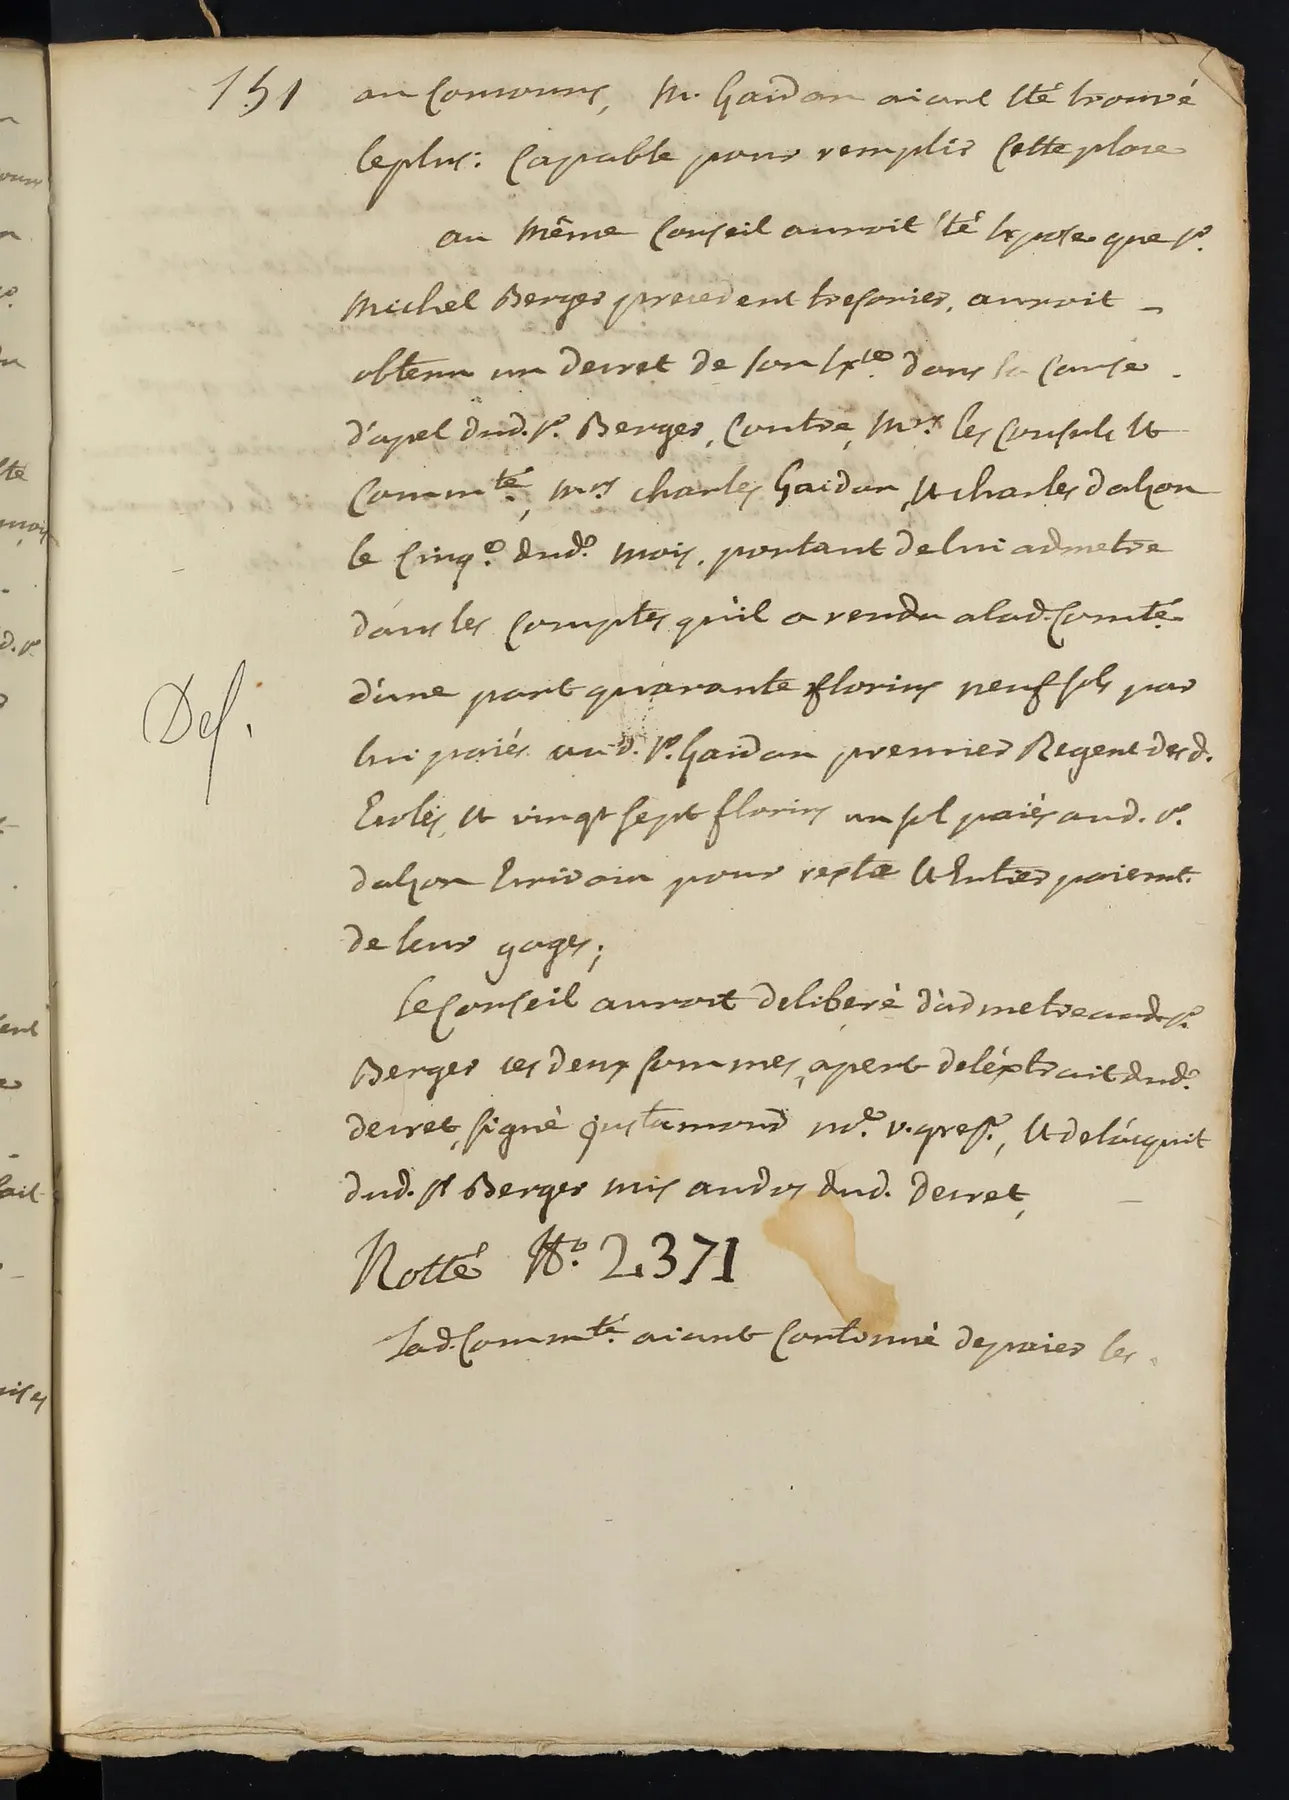 151
au concours, Mr. Gaidan aiant été trouvé
le plus: capable pour remplir cette place
au même Conseil auroit été exposé que Sr.
Michel Berger precedent tresorier, auroit
obtenu un decret de son Exce. dans la cause
d'apel dud. Sr. Berger, contre, Mrs. les Consuls et
Commté., Mrs charles Gaidan, et charles dalzon
le cinqe. dudo. mois, portant de lui admetre
dans les comptes qu'il a rendu a lad. Comté.
d'une part quarante florins neuf sols par
lui paiés aud. Sr. Gaidan premier Regent desd.
Ecoles, et vingt sept florins un sol paiés aud. Sr.
dalzon Ecrivain pour reste et Entier paiemt.
de leur gages;
Del.
le Conseil auroit deliberé d'admetre aud. Sr.
Berger ces deux sommes, apert de l'éxtrait dudo.
decret, signé justamond noe. v. grefr., et de l'acquit
dud. Sr Berger mis au dos dud. decret,
Notté No. 2371
Lad. Commté. aiant continué de paier les